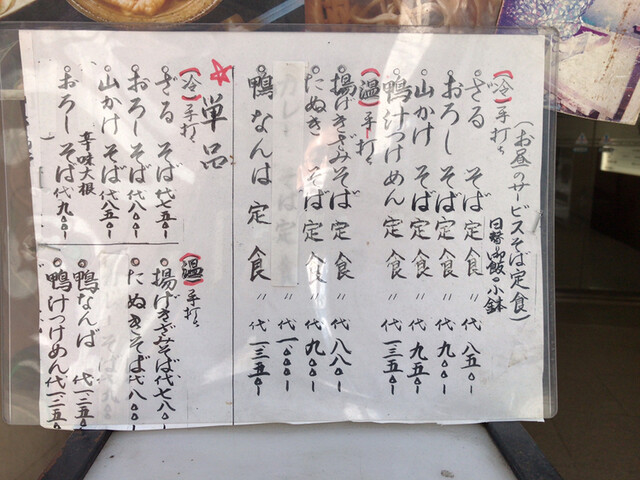 (お昼のサービスそば定食)
日替御飯・小鉢
(冷)手打
ざる そば定食 〃 代 八五〇ー
おろし そば定食 〃 代 九〇〇ー
山かけ そば定食 〃 代 九五〇ー
鴨汁つけめん定食 〃 代 一、三五〇ー
(温)手打
揚げきざみそば定食 〃 代 八八〇ー
たぬき そば定食 〃 代 九〇〇ー
カレー そば定食 〃 代 一、〇〇〇ー
鴨なんば 定食 〃 代 一、三五〇ー
☆単品
(冷)手打
ざる そば 代 七五〇ー
おろし そば 代 八〇〇ー
山かけ そば 代 八五〇ー
辛味大根
おろし そば 代 九〇〇ー
(温)手打
揚げきざみそば 代 七八〇ー
たぬきそば 代 八〇〇ー
そば 代 九〇〇ー
鴨なんば 代 一、三五〇ー
鴨汁つけめん 代 一、三五〇ー